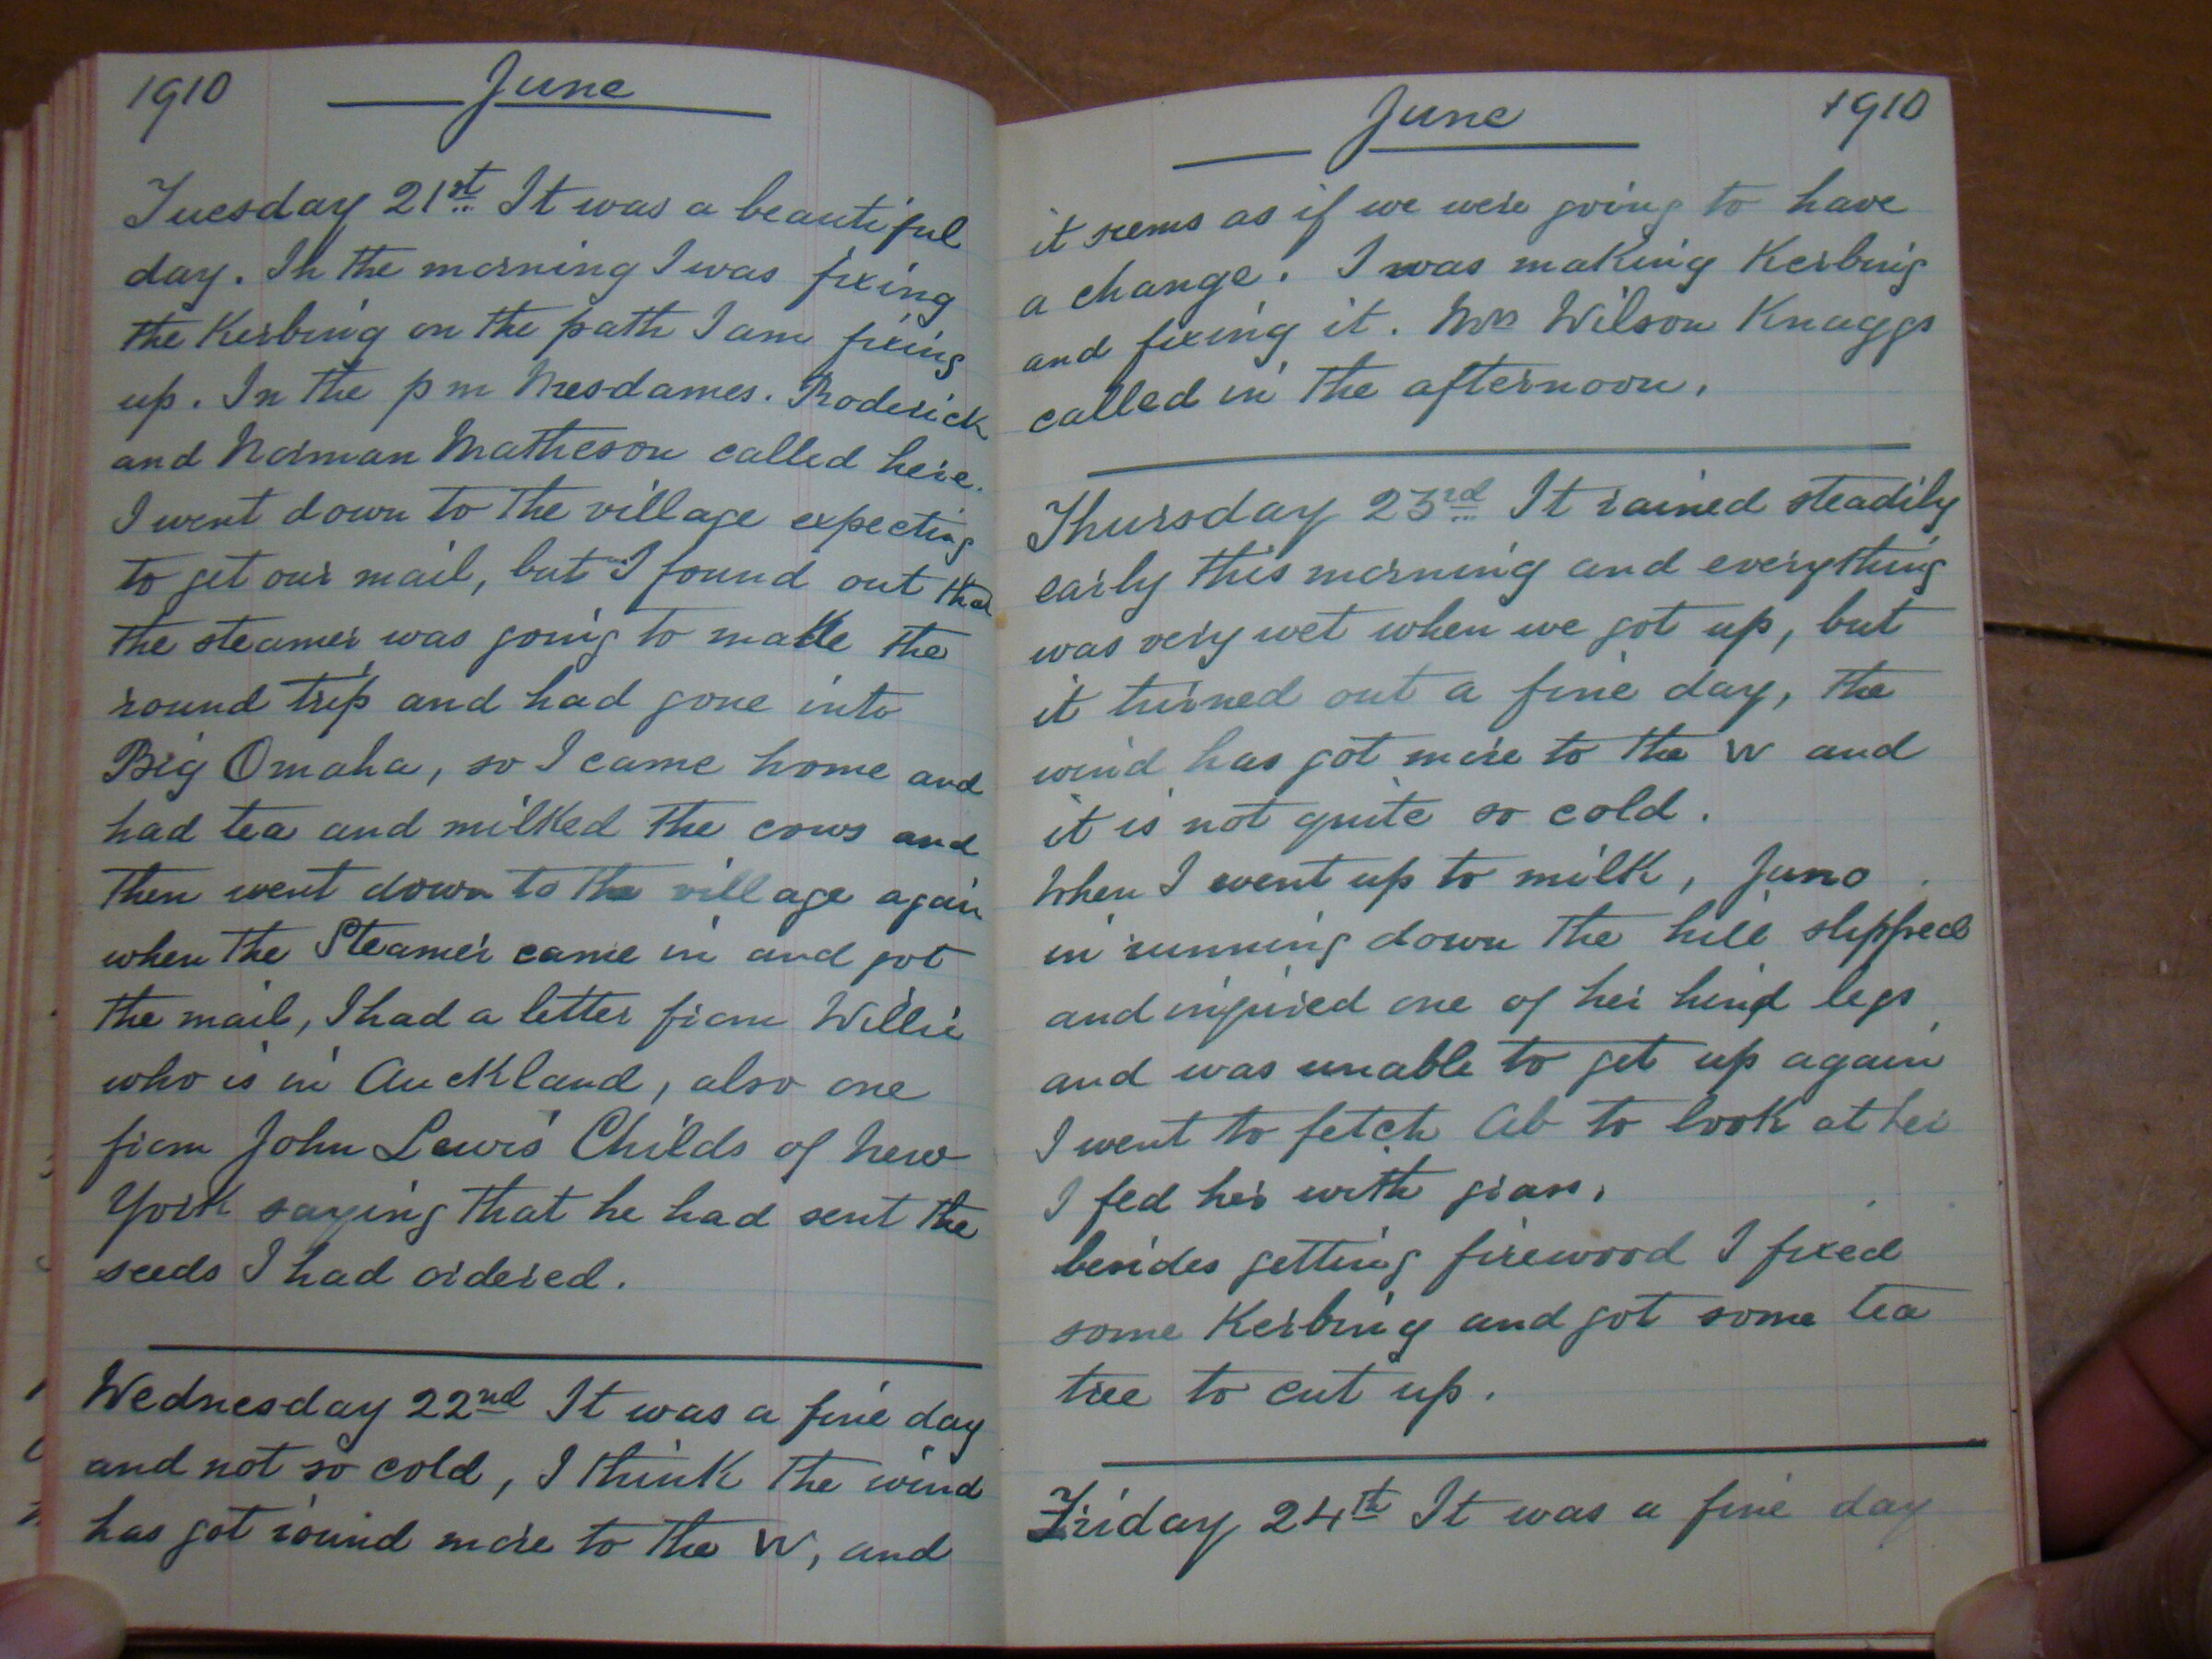 1910 June
Tuesday 21st It was a beautiful
day. In the morning I was fixing
the Kerbing on the path I am fixing
up. In the pm Mesdames. Roderick
and Norman Matheson called here.
I went down to the village expecting
to get our mail, but I found out that
the steamer was going to make the
round trip and had gone into
Big Omaha, so I came home and
had tea and milked the cows and
then went down to the village again
when the Steamer came in and got
the mail, I had a letter from Willie
who is in Auckland, also one
from John Lewis Childs of New
York saying that he had sent the
seeds I had ordered.
Wednesday 22nd It was a fine day
and not so cold, I think the wind
has got round more to the W, and
June 1910
it seems as if we were going to have
a change. I was making Kerbing
and fixing it. Mrs Wilson Knaggs
called in the afternoon.
Thursday 23rd It rained steadily
early this morning and everything
was very wet when we got up, but
it turned out a fine day, the
wind has got more to the W and
it is not quite so cold.
When I went up to milk, Juno
in running down the hill slipped
and injured one of her hind legs
and was unable to get up again
I went to fetch Ab to look at her
I fed her with grass.
besides getting firewood I fixed
some Kerbing and got some tea
tree to cut up.
Friday 24th It was a fine day